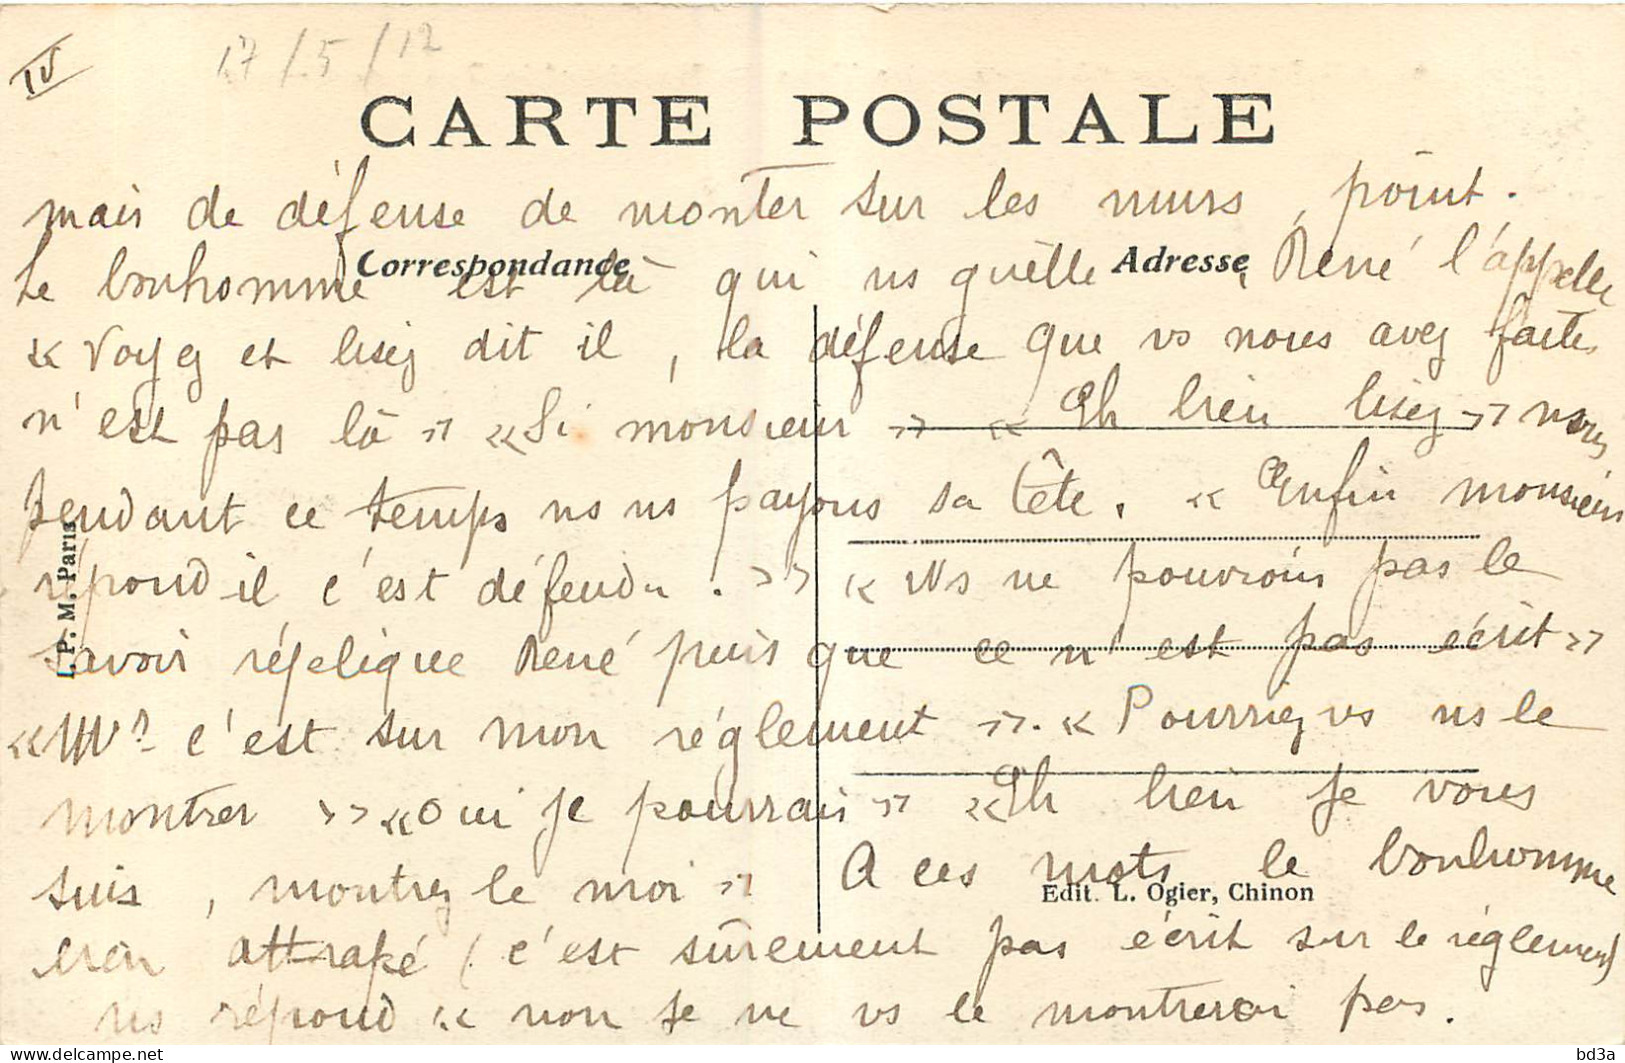 IV
17/5/12
CARTE POSTALE
mais de défense de monter sur les murs, point.
Le bonhomme est là qui ns guette, René l'appelle
Correspondance
Adresse
« Voyez et lisez dit il, la défense que vs nous avez faite
n'est pas là » « Si monsieur » « Eh bien lisez » nous
pendant ce temps ns ns payons sa tête. « Enfin monsieur
répond-il c'est défendu. » « Ns ne pouvions pas le
savoir réplique René puis que ce n'est pas écrit »
« Mr c'est sur mon réglement ». « Pourriez vs ns le
montrer » « Oui je pourrais » « Eh bien je vous
suis, montrez le moi » A ces mots le bonhomme
bien attrapé (c'est sûrement pas écrit sur le réglement)
ns répond « non je ne vs le montrerai pas.
I. P. M. Paris
Edit. L. Ogier, Chinon
delcampe.net
bd3a